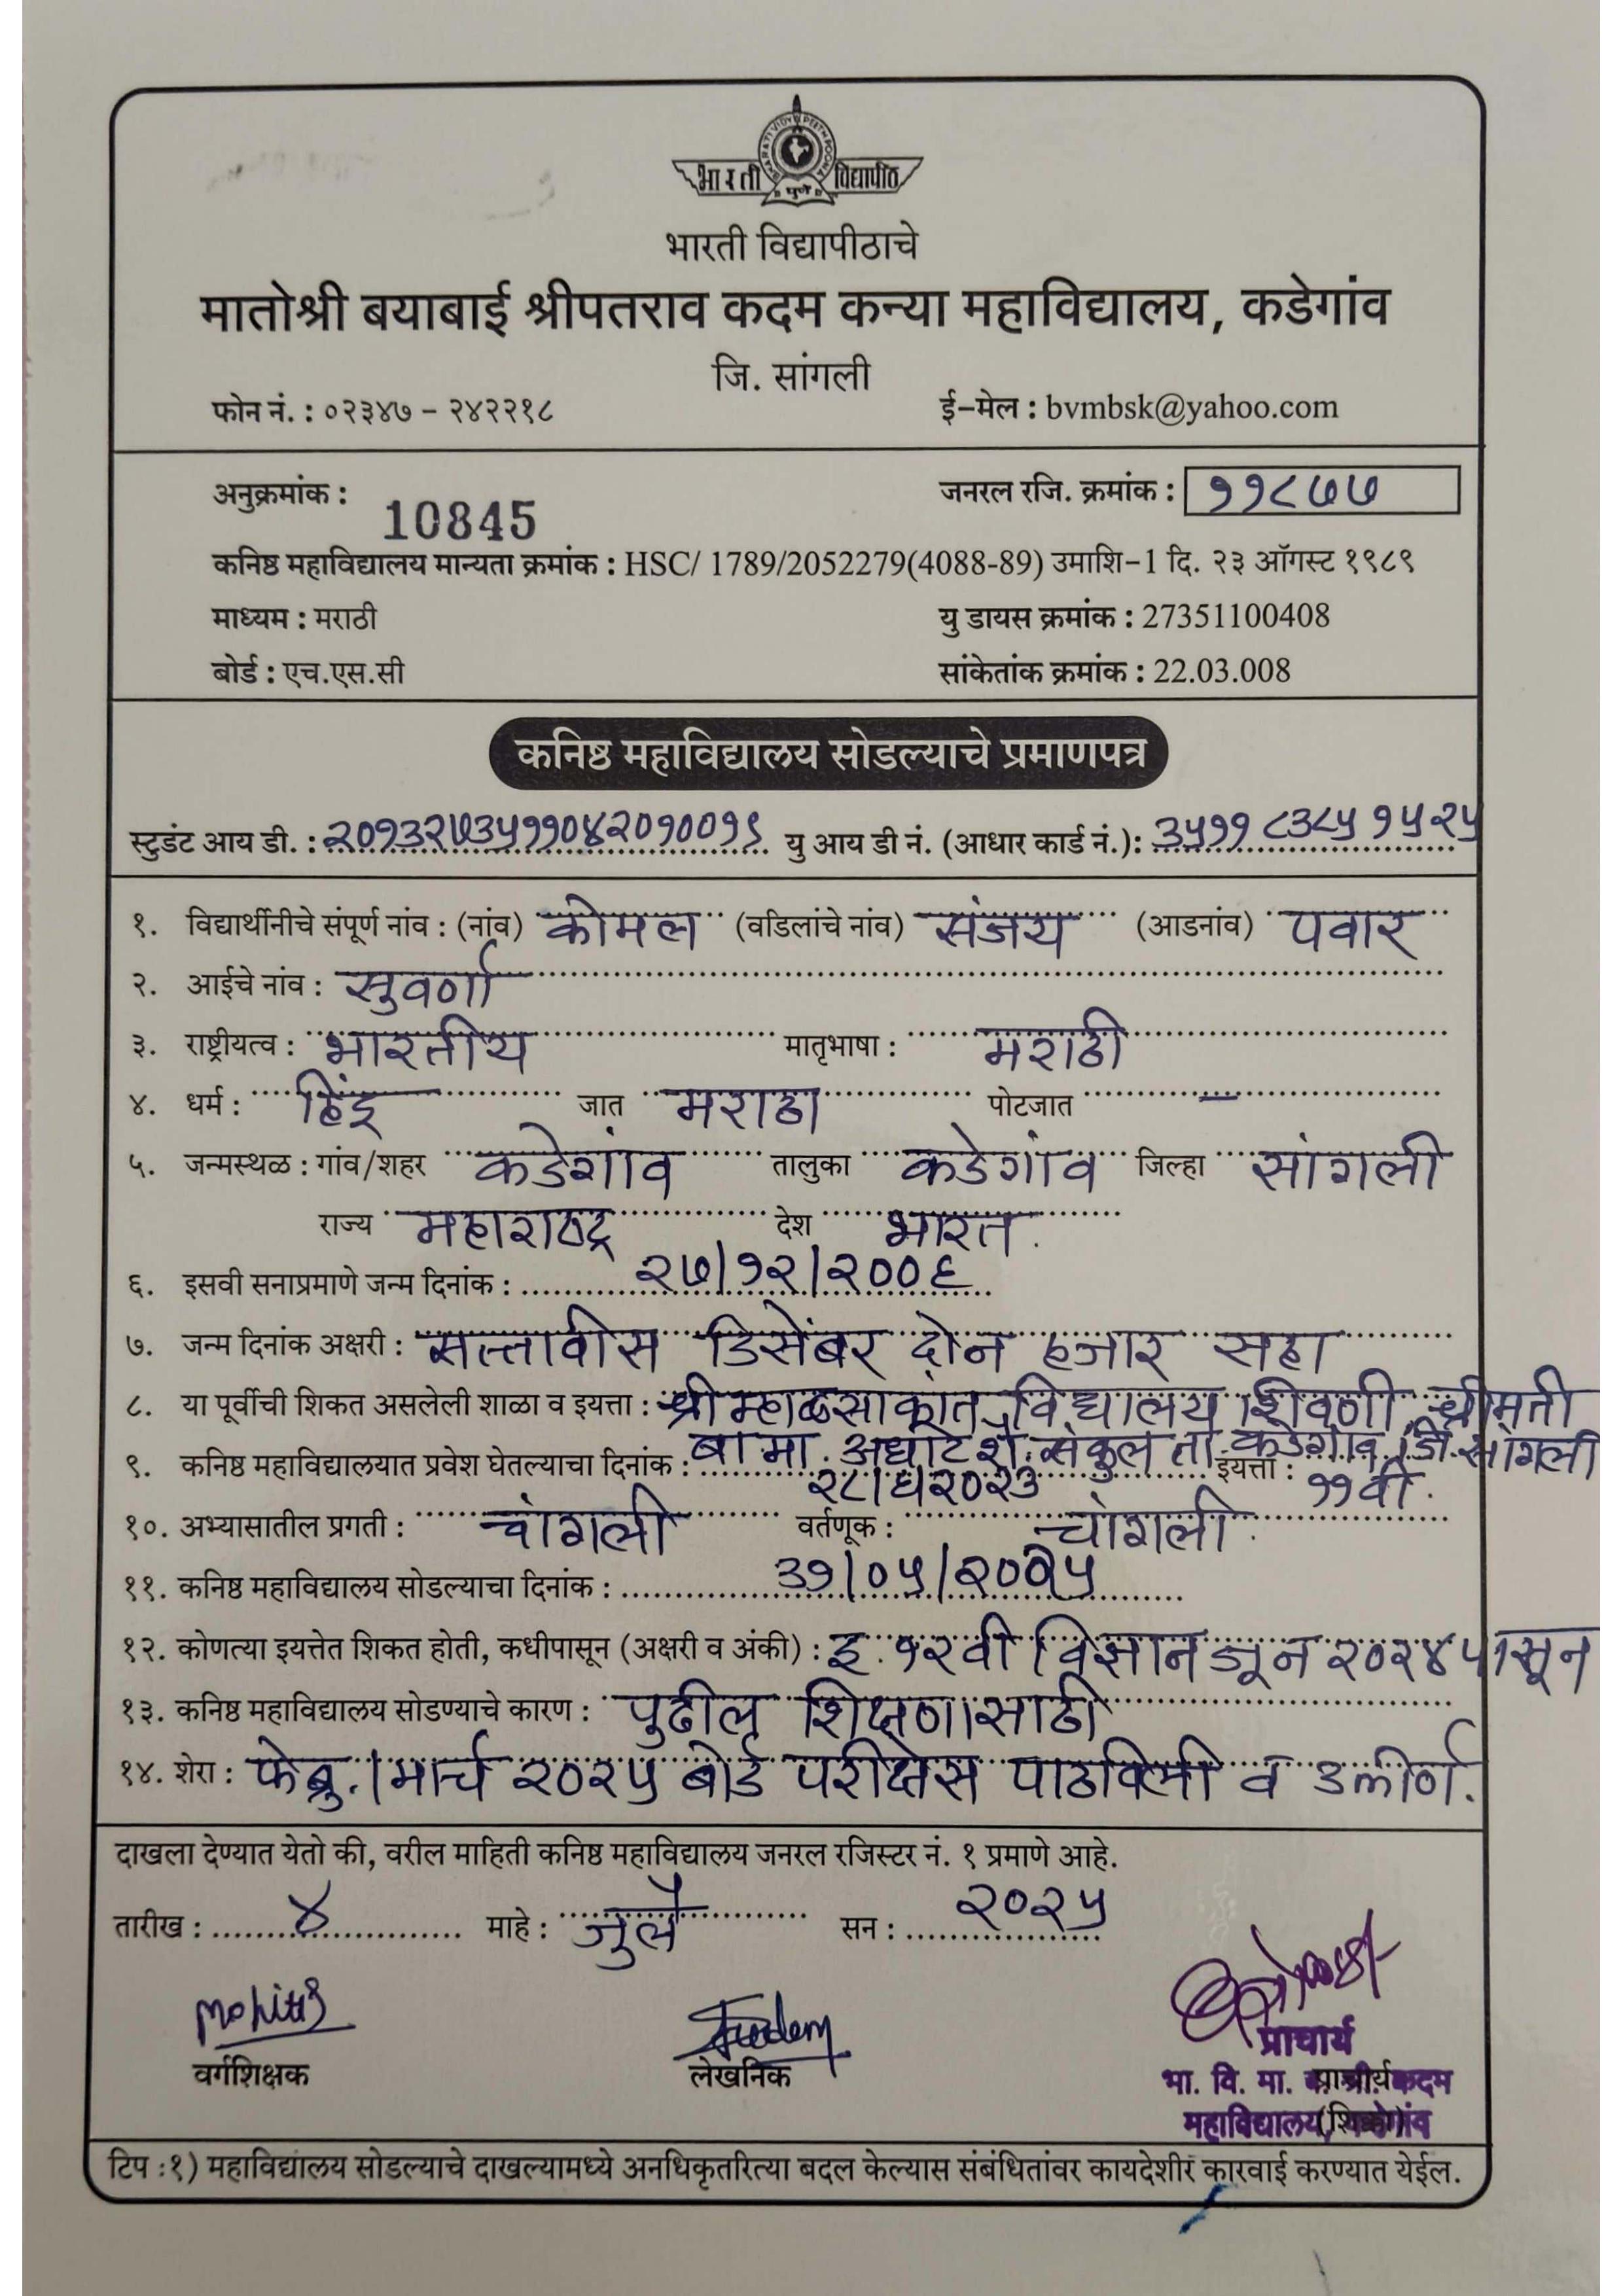 BHARATI VIDYAPEETH POONA
भारती विद्यापीठ
पुणे
भारती विद्यापीठाचे
मातोश्री बयाबाई श्रीपतराव कदम कन्या महाविद्यालय, कडेगांव
जि. सांगली
फोन नं. : ०२३४७ - २४२२१८ ई-मेल : bvmbsk@yahoo.com
अनुक्रमांक : 10845 जनरल रजि. क्रमांक : ११८७७
कनिष्ठ महाविद्यालय मान्यता क्रमांक : HSC/ 1789/2052279(4088-89) उमाशि-1 दि. २३ ऑगस्ट १९८९
माध्यम : मराठी यु डायस क्रमांक : 27351100408
बोर्ड : एच.एस.सी सांकेतांक क्रमांक : 22.03.008
कनिष्ठ महाविद्यालय सोडल्याचे प्रमाणपत्र
स्टुडंट आय डी. : २०१३२७३५११०४२०१००१९ यु आय डी नं. (आधार कार्ड नं.): ३५११ ८३८५ १५२५
१. विद्यार्थीनीचे संपूर्ण नांव : (नांव) कोमल (वडिलांचे नांव) संजय (आडनांव) पवार
२. आईचे नांव : सुवर्णा
३. राष्ट्रीयत्व : भारतीय मातृभाषा : मराठी
४. धर्म : हिंदू जात मराठा पोटजात —
५. जन्मस्थळ : गांव/शहर कडेगांव तालुका कडेगांव जिल्हा सांगली
राज्य महाराष्ट्र देश भारत.
६. इसवी सनाप्रमाणे जन्म दिनांक : २७/१२/२००६
७. जन्म दिनांक अक्षरी : सत्तावीस डिसेंबर दोन हजार सहा
८. या पूर्वीची शिकत असलेली शाळा व इयत्ता : श्री म्हाळसाकांत विद्यालय शिवणी, श्रीमती
बा मा. अर्धाटे शै. संकुल ता. कडेगांव, जि. सांगली
९. कनिष्ठ महाविद्यालयात प्रवेश घेतल्याचा दिनांक : २८/६/२०२३ इयत्ता : ११वी.
१०. अभ्यासातील प्रगती : चांगली वर्तणूक : चांगली.
११. कनिष्ठ महाविद्यालय सोडल्याचा दिनांक : ३१/०५/२०२५
१२. कोणत्या इयत्तेत शिकत होती, कधीपासून (अक्षरी व अंकी) : इ. १२वी विज्ञान जून २०२४ पासून
१३. कनिष्ठ महाविद्यालय सोडण्याचे कारण : पुढील शिक्षणासाठी
१४. शेरा : फेब्रु./मार्च २०२५ बोर्ड परीक्षेस पाठविली व उत्तीर्ण.
दाखला देण्यात येतो की, वरील माहिती कनिष्ठ महाविद्यालय जनरल रजिस्टर नं. १ प्रमाणे आहे.
तारीख : ४ माहे : जुलै सन : २०२५
वर्गशिक्षक लेखनिक प्राचार्य
भा. वि. मा. कदम
महाविद्यालय, कडेगांव
प्राचार्य
(शिक्का)
टिप :१) महाविद्यालय सोडल्याचे दाखल्यामध्ये अनधिकृतरित्या बदल केल्यास संबंधितांवर कायदेशीर कारवाई करण्यात येईल.